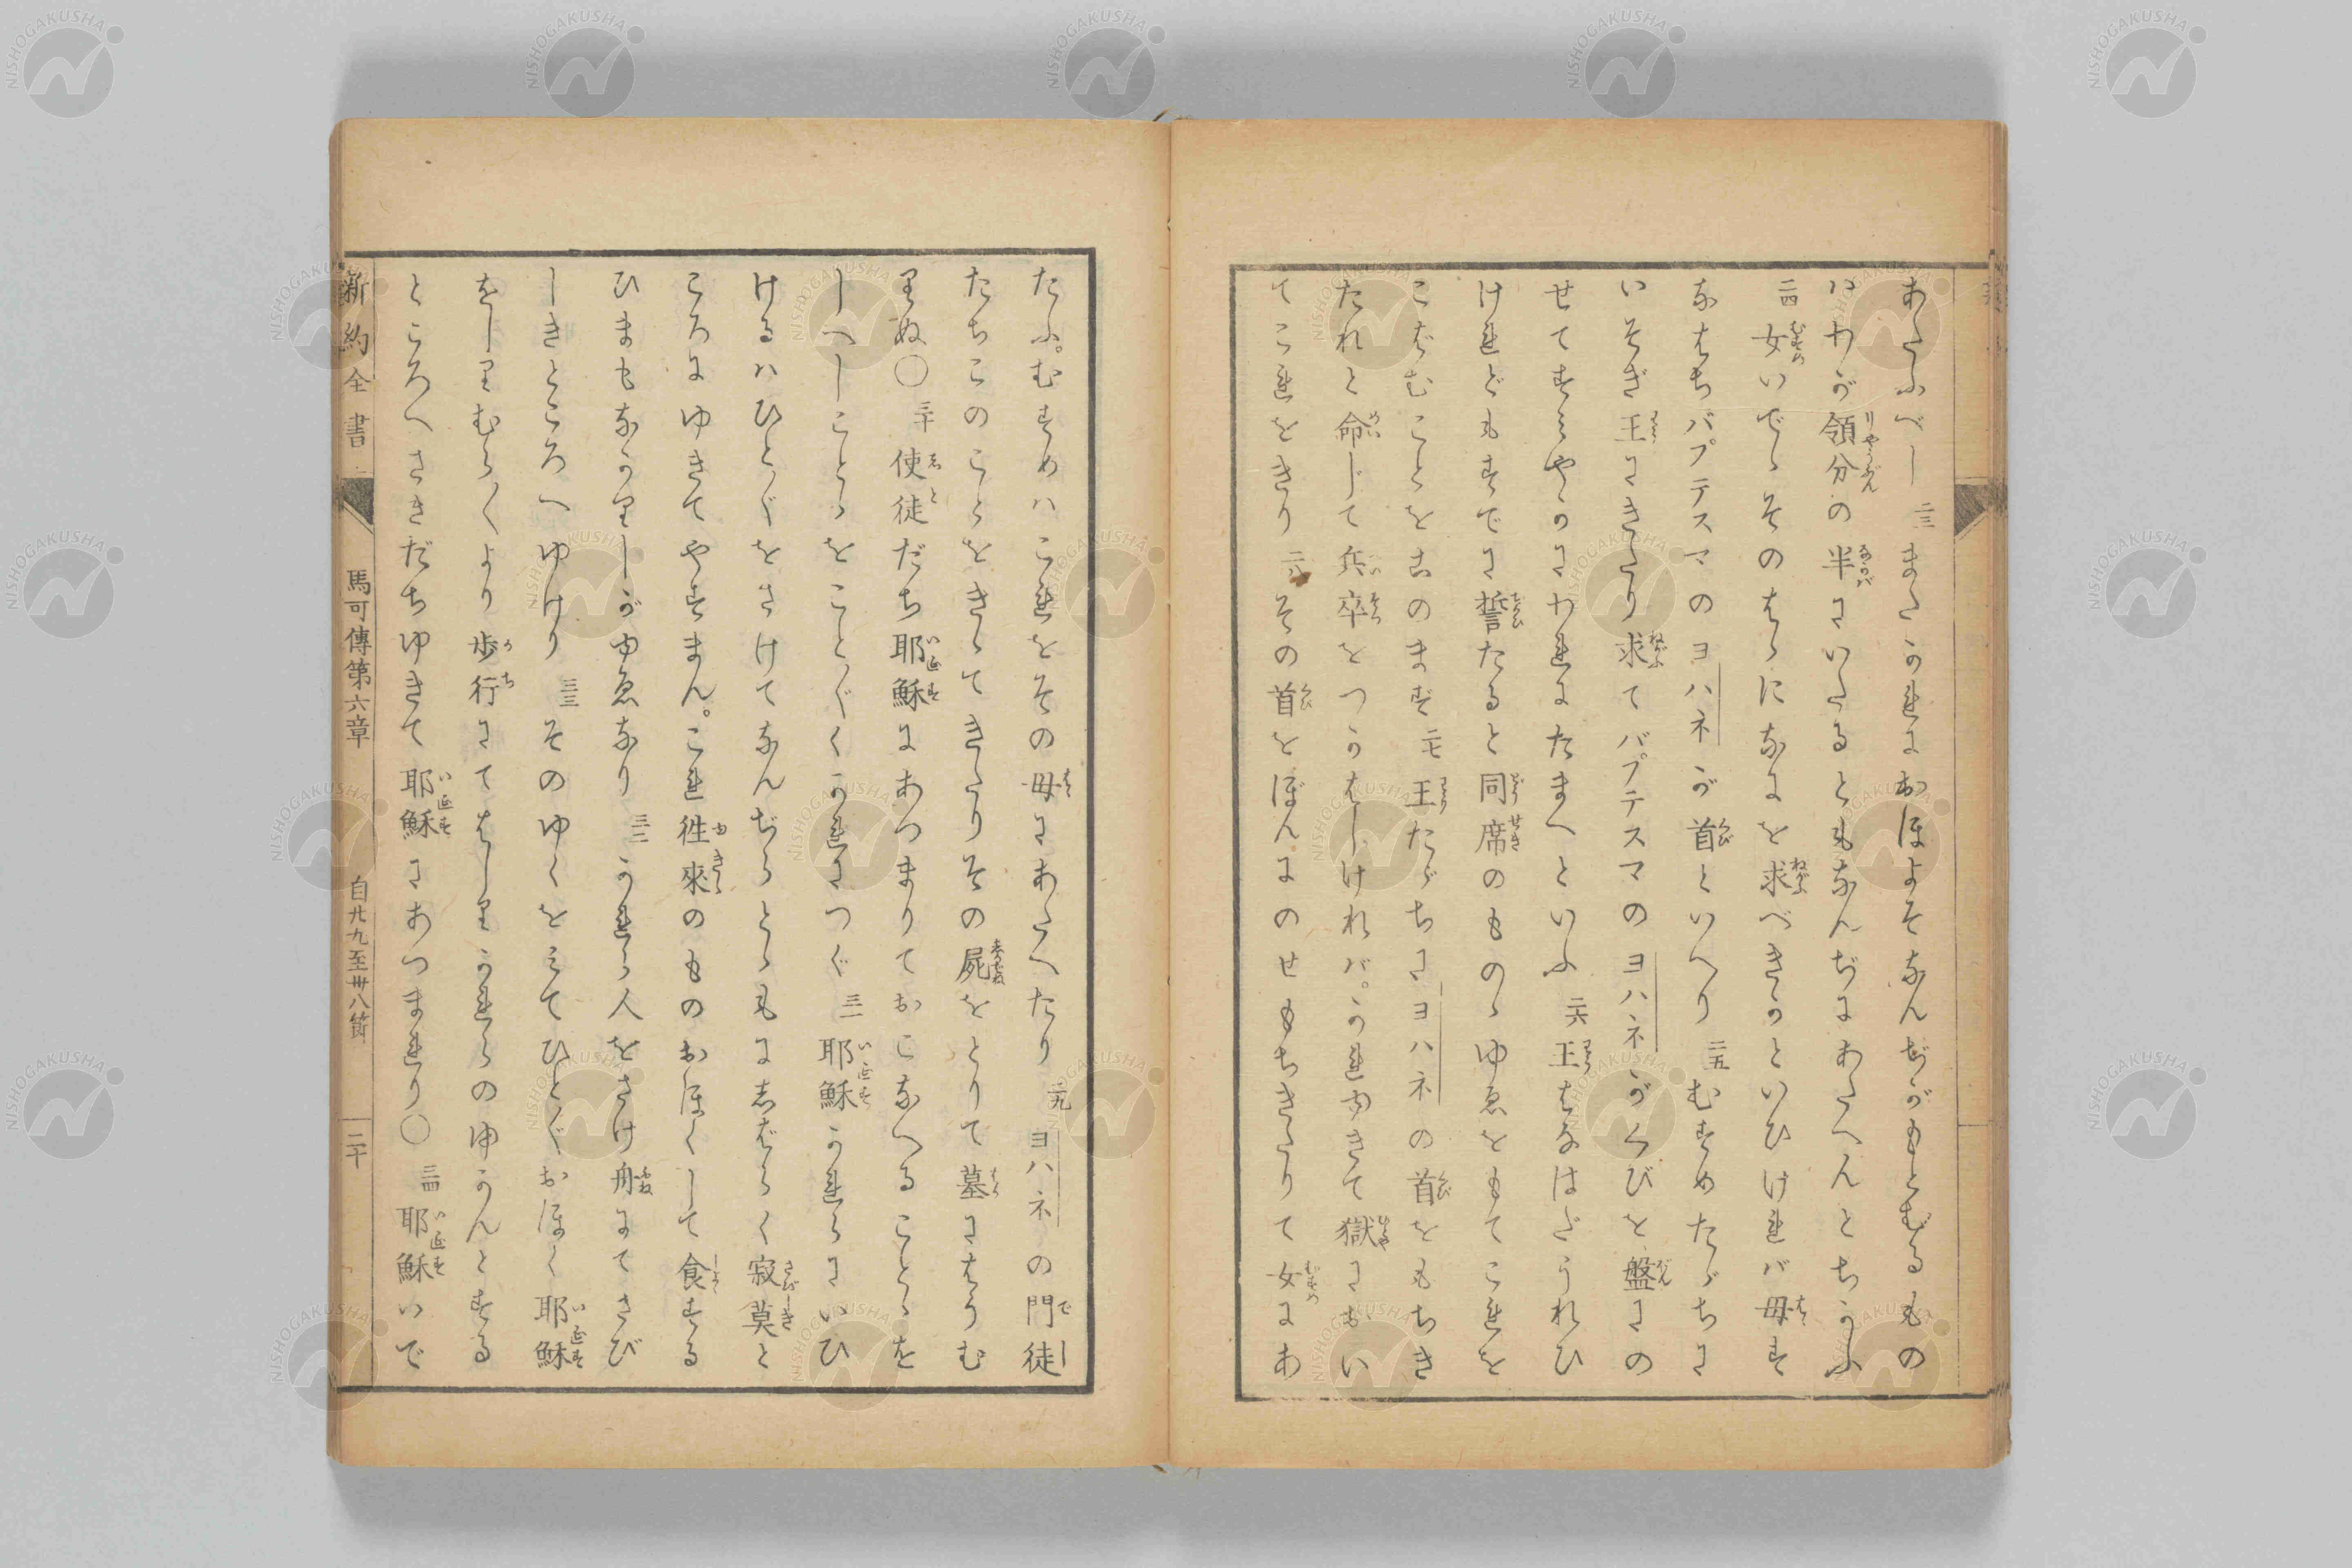 あたふべし 二三 またかれにおほよそなんぢがもとむるもの
ハわが領分の半にいたるともなんぢにあたへんとちかふ
二四 女いでゝそのはゝになにを求べきかといひけれバ母す
なはちバプテスマのヨハネが首といへり 二五 むすめたゞちに
いそぎ王にきたり求てバプテスマのヨハネがくびを盤にの
せてすみやかにわれにたまへといふ 二六 王はなはだうれひ
けれども<br>すでに誓たると同席のものゝゆゑをもてこれを
こばむことをこのまず 二七 王たゞちにヨハネの首をもちき
たれと命じて兵卒をつかはしけれバ。かれゆきて獄におい
てこれをきり 二八 その首をぼんにのせもちきたりて女にあ
たふ。むすめハこれをその母にあたへたり 二九 ヨハネの門徒
たちこのことをきゝてきたりその屍をとりて墓にはうむ
りぬ〇 三十 使徒だち耶穌にあつまりておこなへることゝを
しへしことゝをこと〴〵くかれにつぐ 三一 耶穌かれらにいひ
けるハひと〴〵をさけてなんぢらとゝもにしばらく寂莫と
ころにゆきてやすまん。これ徃來のものおほくして食する
ひまもなかりしがゆゑなり 三二 かれら人をさけ舟にてさび
しきところへゆけり 三三 そのゆくをみてひと〴〵おほく耶穌
をしりむら〳〵より歩行にてはしりかれらのゆかんとする
ところへさきだちゆきて耶穌にあつまれり〇 三四 耶穌いで
新約全書 馬可傳第六章 自廾九至卅八節 二十